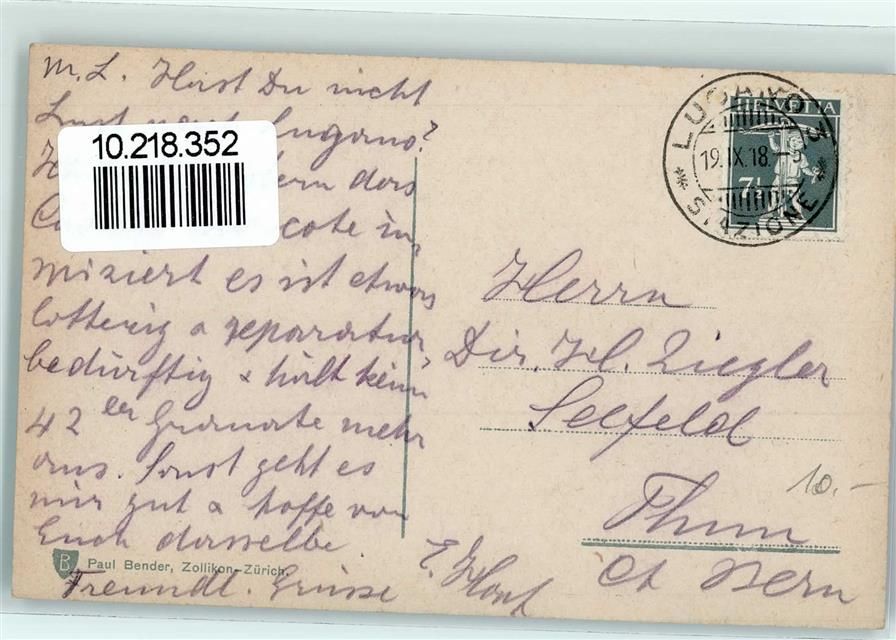 M. L. Hast Du nicht
Lust nach Lugano?
10.218.352
dors
cote in
miziert es ist etwas
lotterig & reparatur
bedürftig & hält kein
42 er Granate mehr
aus. Sonst geht es
mir gut & hoffe von
Euch dasselbe
Freundl. Grüsse
B Paul Bender, Zollikon-Zürich
LUGANO 3
19.IX.18.-5
STAZIONE
HELVETIA
7½
Herrn
Dir. H. Ziegler
Seefeld
Thun
Ct Bern
10.-